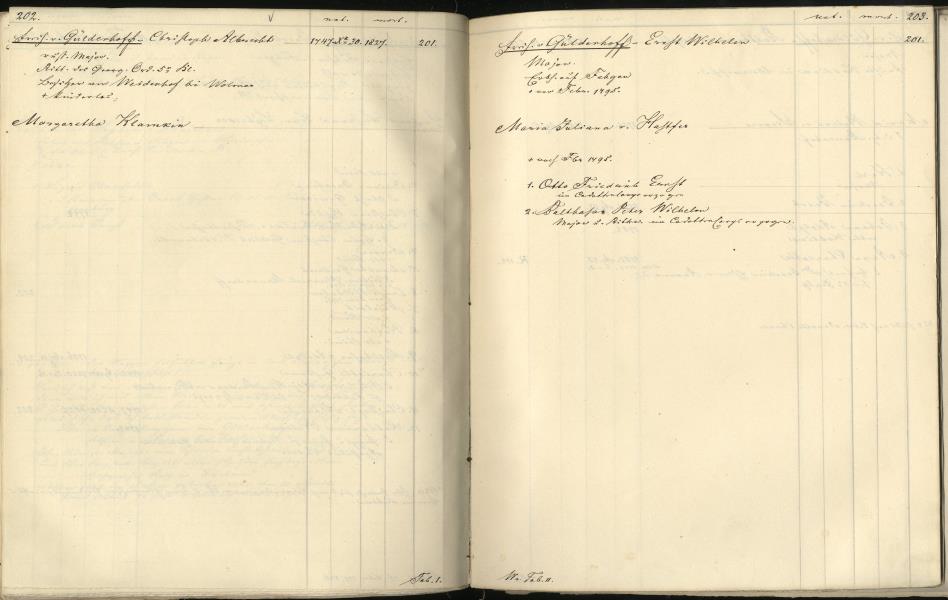 202. nat. mort.
v. Gülderhoff - Christoph Albrecht 1747 30. 1827. 201.
russ. Major.
Ritt. des Georg. Ord. 5r Kl.
Besitzer von Weidenhof bei Wolmar
+ kinderlos;
Margaretha Klamkin
Tab. I.
nat. mort. 203.
v. Gülderhoff - Ernst Wilhelm 201.
Major.
Erbh. auf
+ vor Febr. 1795.
Maria Juliana v. Hastfer
+ nach Fbr 1795.
1. Otto Friedrich Ernst
im Cadettencorps erzogen
2. Balthasar Peter Wilhelm
Major u. Ritter im Cadettencorps erzogen.
Tab. II.